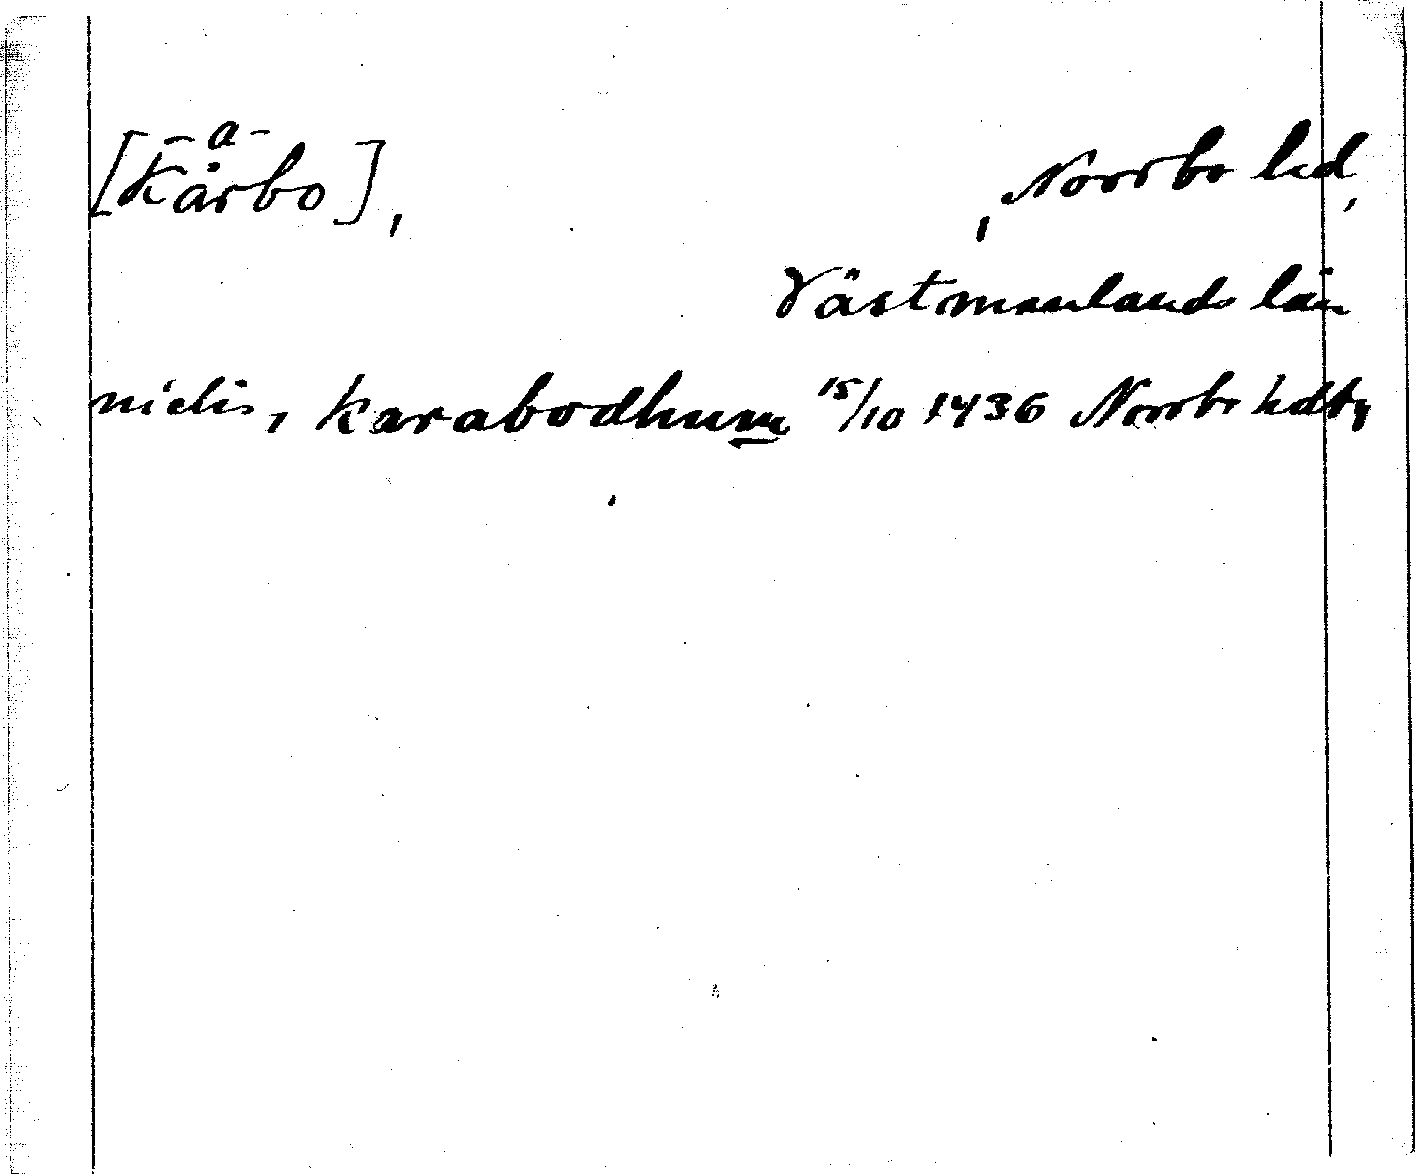 [Kårbo], , Norrbo hd,
-a-
Västmanlands län
nielis, karabodhum 15/10 1436 Norrbo hdtg